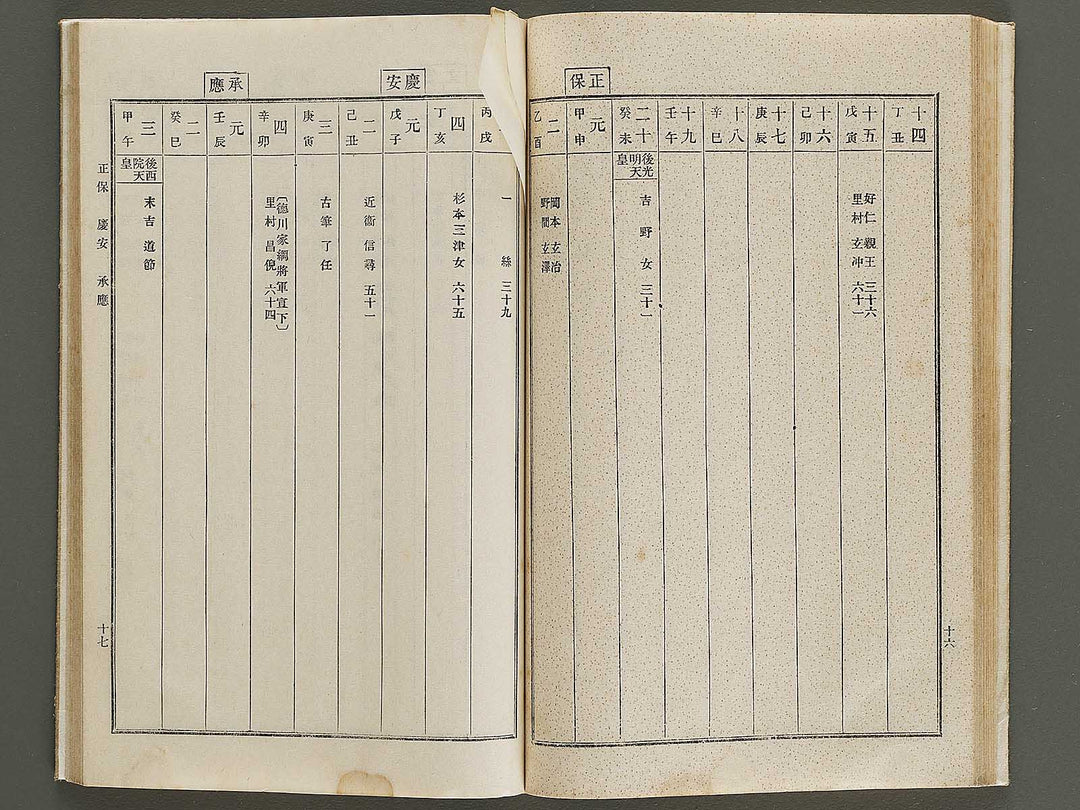 正保
十四
丁丑
十五
戊寅
好仁親王 三十六
里村玄冲 六十一
十六
己卯
十七
庚辰
十八
辛巳
十九
壬午
二十
癸未
後光
明天
皇
吉野女 三十一
元
甲申
二
乙酉
岡本玄冶
野間玄澤
十六
慶安
承應
丙戌
一絲 三十九
四
丁亥
杉本三津女 六十五
元
戊子
二
己丑
近衞信尋 五十一
三
庚寅
古筆了任
四
辛卯
〔德川家綱將軍宣下〕
里村昌俔 六十四
元
壬辰
二
癸巳
三
甲午
後西
院天
皇
末吉道節
正保 慶安 承應
十七